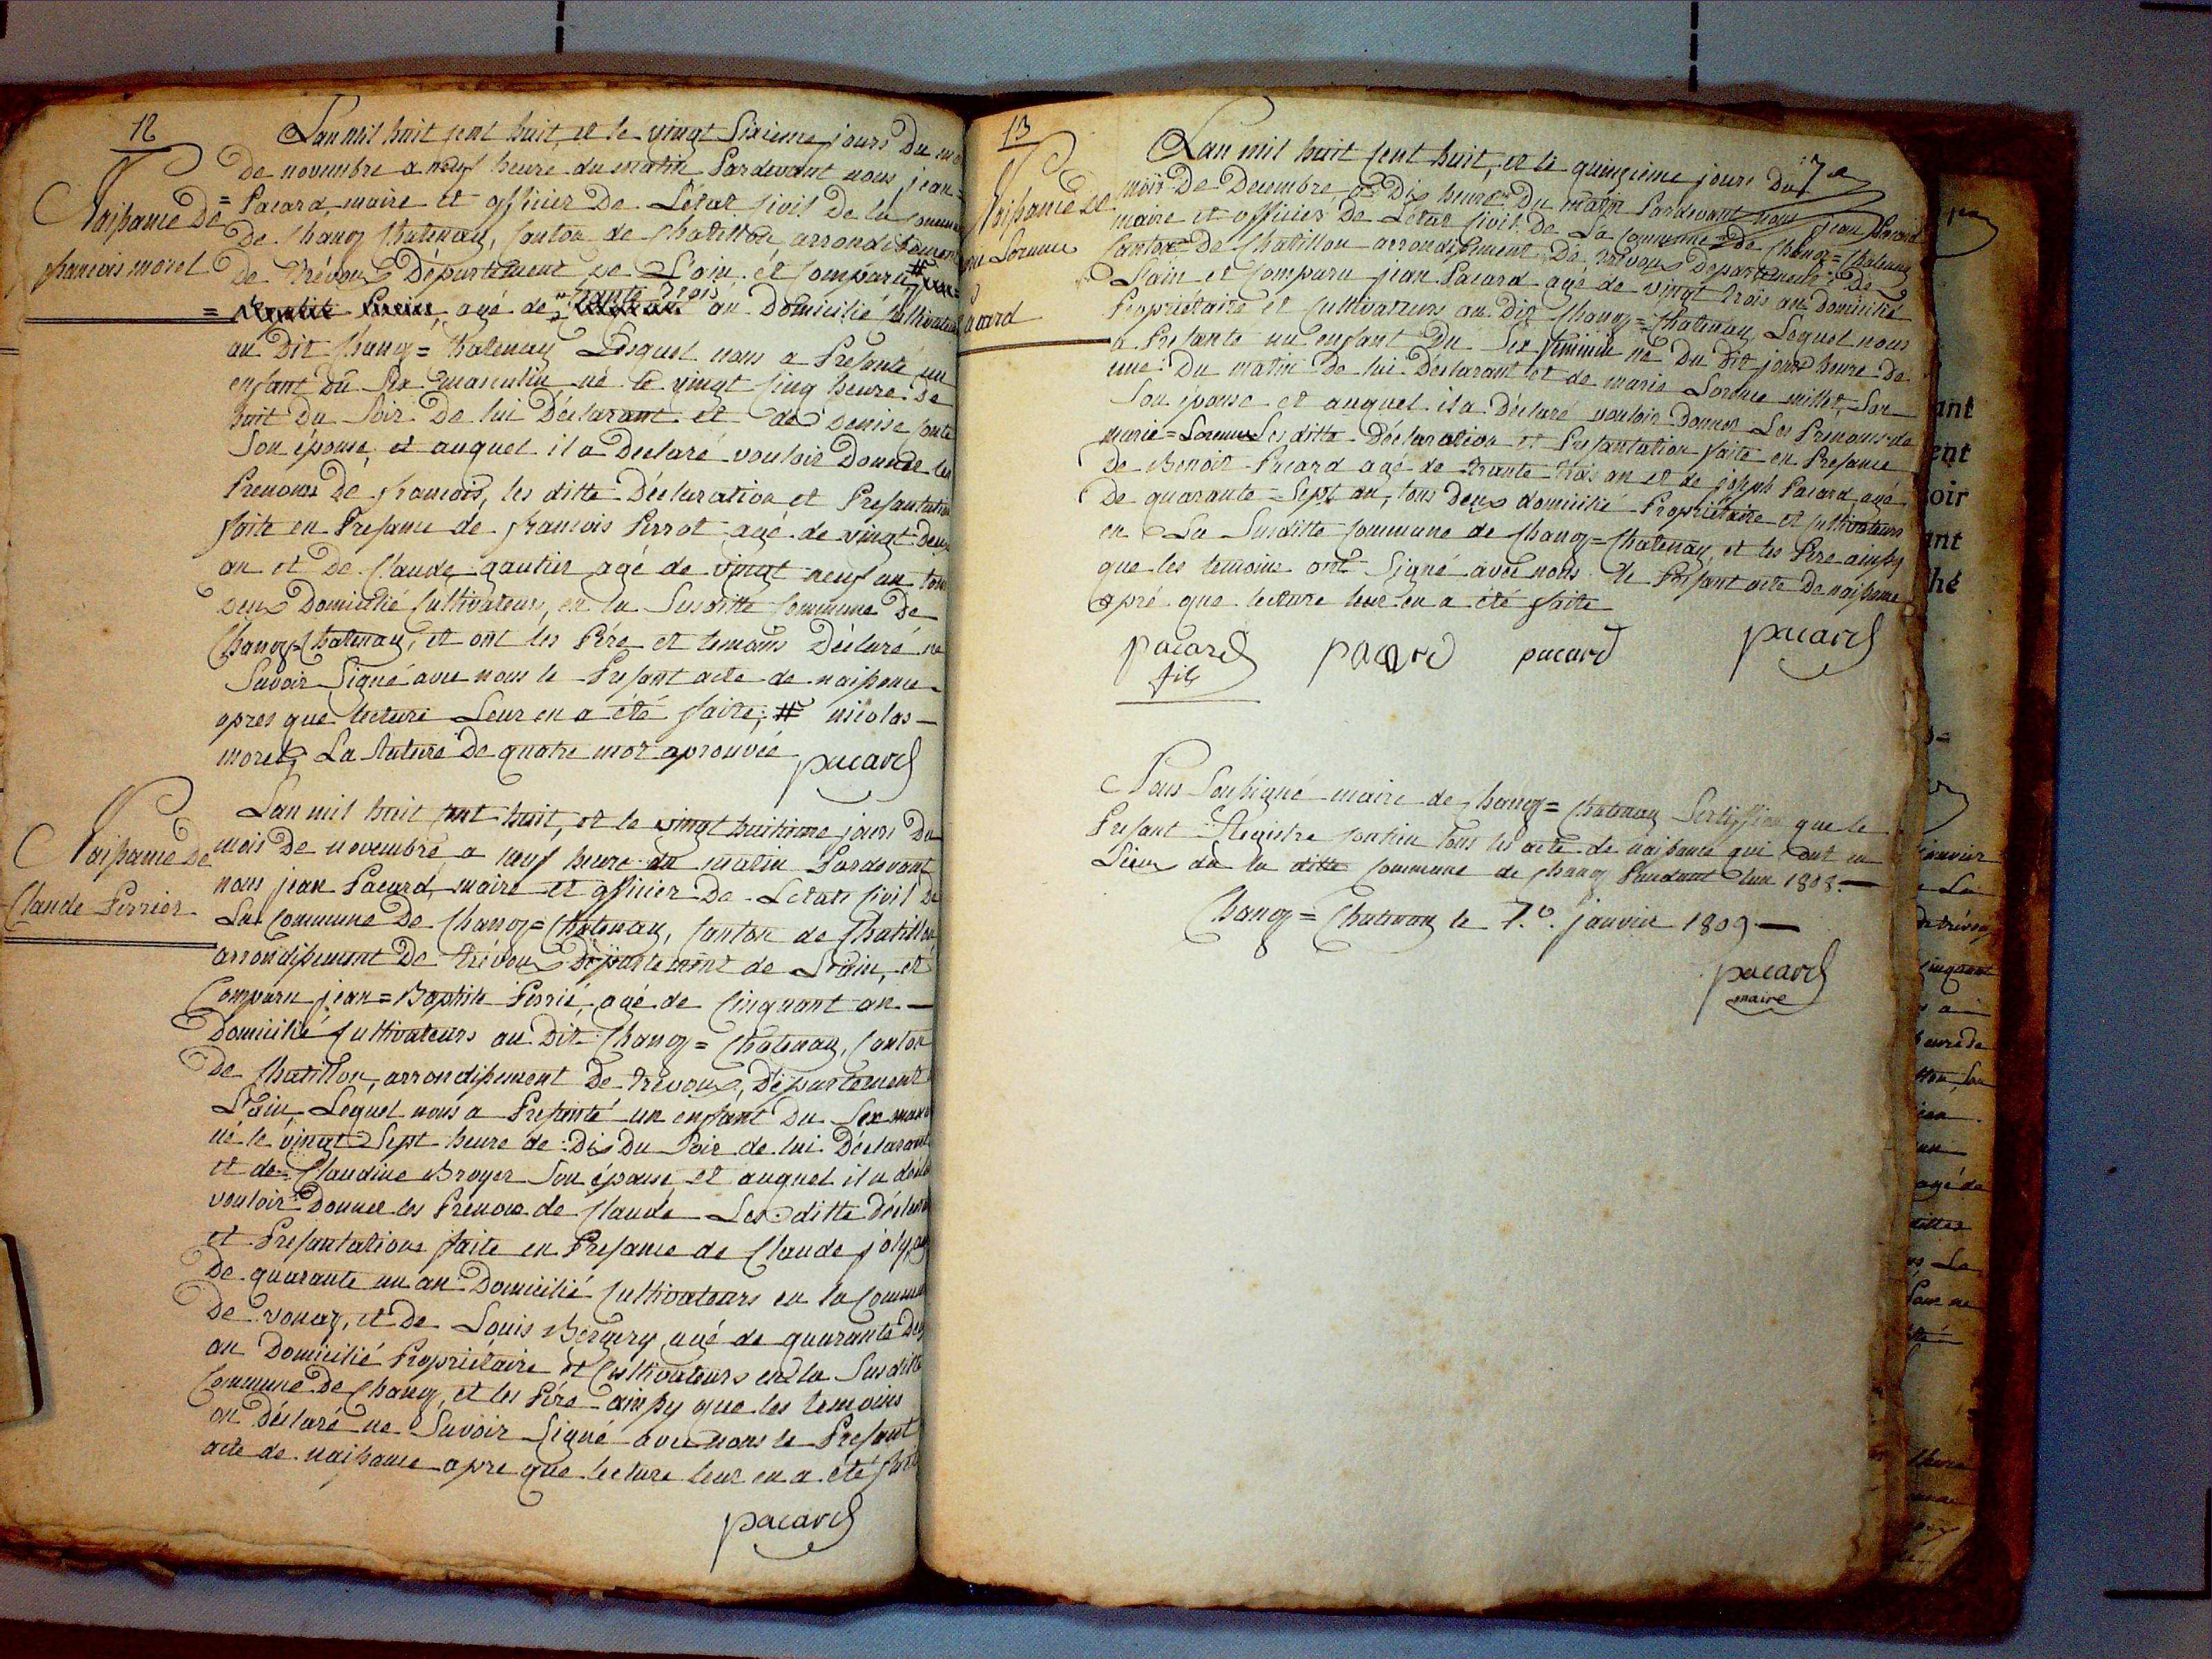 12
Naissance De
francois morel
L'an mil huit sent huit, et le vingt Sixieme jours Du mo
De novembre a neuf heure du matin Pardevant nous jean =
= Pacard, maire et officier De L'état Civil De la Commune
De Chanoz Chatenay, Canton de Chatillon arrondissement
De trévoux Département De L'ain et Comparu #
= agé de trante trois an Domicilié Cultivateur
au Dit Chanoz = Chatenay Lesquel nous a Presanté un
enfant du Sex masculin né le vingt Cinq heure De
huit Du Soir De lui Déclarant et de Denise Conte
Son épouse, et auquel il a Declaré vouloir Donner les
Prenoms De francois, les ditte Déclaration et Presantation
faite en Presance de francois Perrot agé de vingt Deux
an et De Claude gautier agé de vingt neuf an tous
Deux Domicilié Cultivateur, en la Susditte Commune De
Chanoz=Chatenay, et ont les Pére et temoins Déclaré ne
Savoir Signé avec nous le Presant acte de naissance
apres que lecture Leur en a été faite; # nicolas
morel, La rature De quatre mot aprouvée
pacard
Naissance De
Claude Perrier
L'an mil huit sent huit, et le vingt huitieme jours Du
mois De novembre a neuf heure du matin Pardevant
nous jean Pacard, maire et officier De L'état Civil De
La Commune De Chanoz=Chatenay, Canton de Chatillon
arrondissement De trévoux Département de L'ain, et
Comparu jean=Baptiste Perrié, agé de Cinquant an
Domicilié Cultivateurs au Dit Chanoz = Chatenay, Canton
De Chatillon, arrondissement De trévoux, Département
L'ain, Lequel nous a Presanté un enfant Du Sex mas
né le vingt Sept heure de Dix Du Soir de lui Déclarant
et de Claudine Broyer Son épouse et auquel il a décla
vouloir Donner les Prenoms de Claude Les ditte Déclara
et Presantations faite en Presance de Claude joly, agé
De quarante un an Domicilié Cultivateurs en la Commu
De vonaz, et De Louis Bergery agé de quarante Deux
an Domicilié Propriétaire et Cultivateurs en la Susditte
Commune De Chanoz, et les Pére ainsy que les temoins
on Déclaré ne Savoir Signé avec nous le Presant
acte de naissance apre que lecture leur en a été fait
pacard
13
Naissance De
Lorence
acard
7e
L'an mil huit sent huit, et le quinzieme jours Du
mois De Decembre, a Dix heure Du matin Pardevant nous jean Pacard
maire et officier De L'état Civil De La Commune De Chanoz=Chatenay
Canton De Chatillon arrondissement De trévoux Departement De
L'ain et Comparu jean Pacard agé de vingt trois an Domicilié
Propriétaire et Cultivateurs au Dit Chanoz=Chatenay, Lequel nous
a Presanté un enfant Du Sex feminin né Du Dit jour heure De
une Du matin De lui Déclarant et de marie Lorence millet, Son
Son épouse et auquel il a Déclaré vouloir Donner Les Prenoms de
marie=Lorence Les ditte Déclaration et Presantation faite en Presance
De Benoit Pacard agé de trante trois an et de joseph Pacard, agé
De quarante=Sept an, tous Deux domicilié Propriétaire et Cultivateurs
en La Susditte Commune de Chanoz=Chatenay, et les Pére ainsy
que les temoins ont Signé avec nous le Presant acte De naissance
apré que lecture leur en a été faite
pacard fils pacard pacard pacard
Nous Soussigné maire de Chanoz=Chatenay Sertiffion que le
Presant Registre Contien tous les acte de naissance qui ont eu
Lieu da la ditte Commune de Chanoz Pendant l'an 1808.
Chanoz=Chatenay le 1.º janvier 1809
pacard
maire